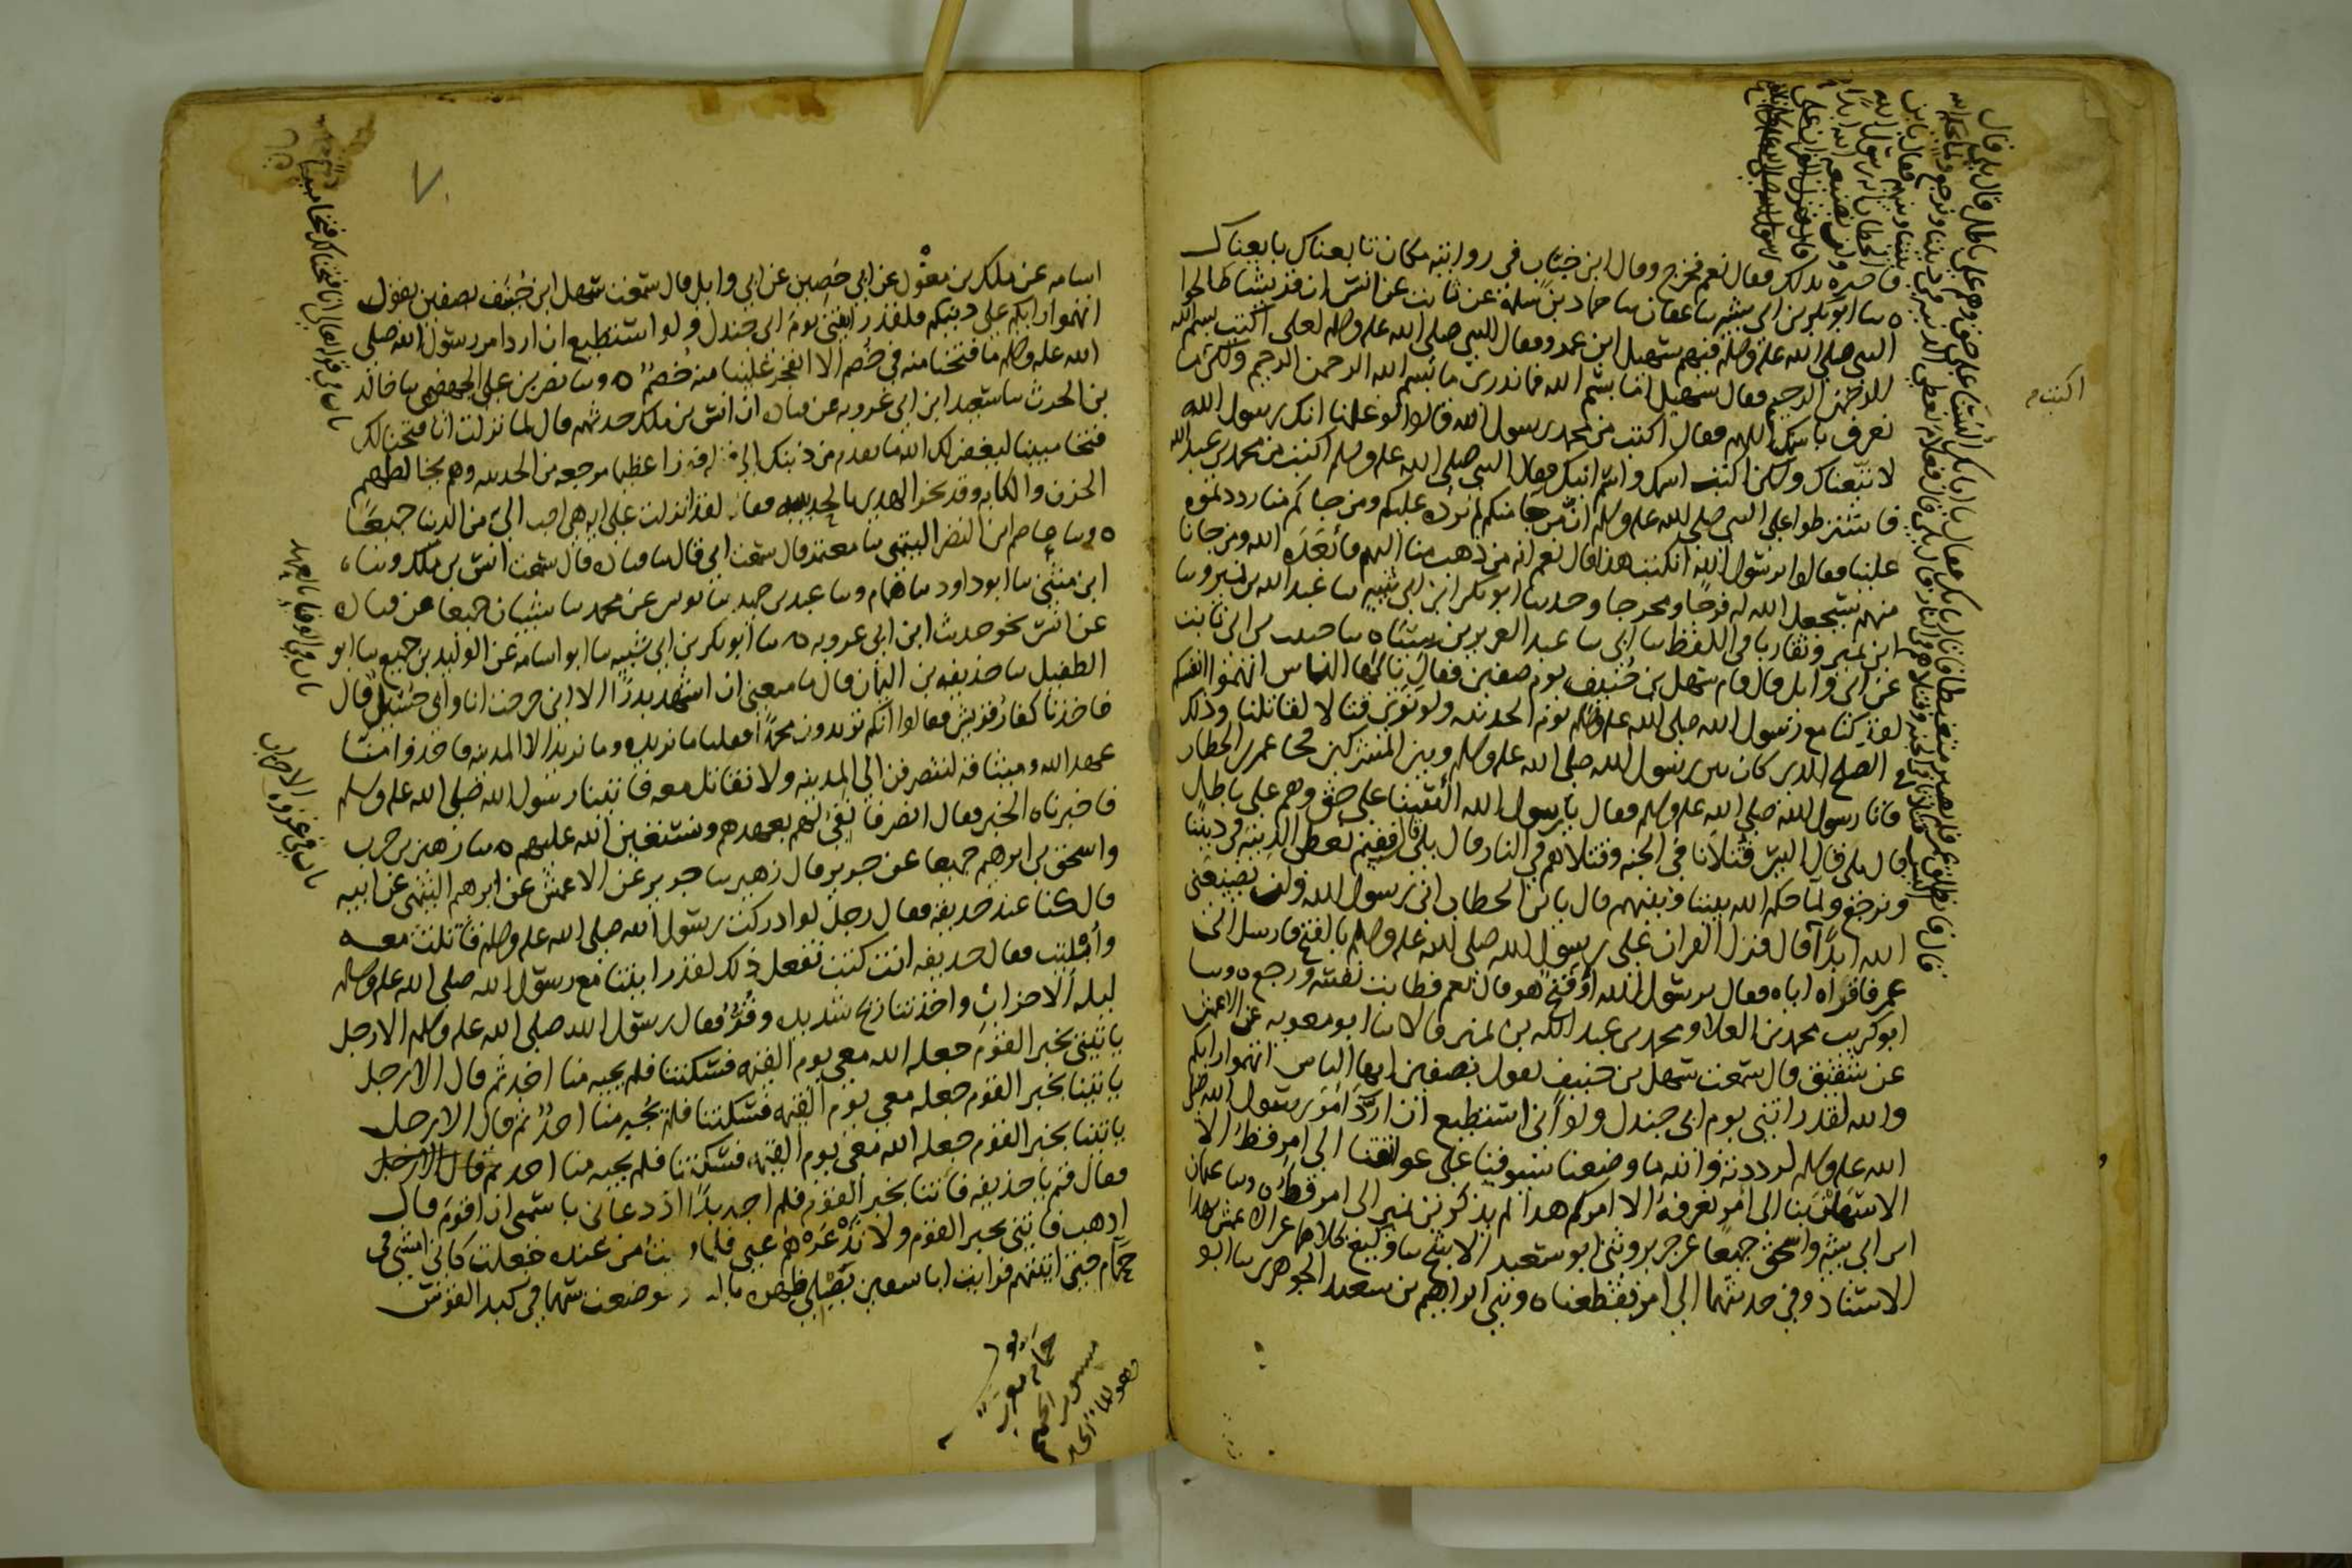 فاخبره بذلك فقال نعم فخرج وقال ابن جناب في روايته مكان تابعناك بايعناك
ه سا ابو بكر بن ابي شيبه سا عفان سا حماد بن سلمة عن ثابت عن انس ان قريشا صالحوا
النبي صلى الله عليه وسلم فيهم سهيل ابن عمرو فقال النبي صلى الله عليه وسلم لعلي اكتب بسم الله
الرحمن الرحيم فقال سهيل اما بسم الله فما ندري ما بسم الله الرحمن الرحيم ولكن ما
نعرف باسمك اللهم فقال اكتب من محمد رسول الله قالوا لو علمنا انك رسول الله
لاتبعناك ولكن اكتب اسمك واسم ابيك فقال النبي صلى الله عليه وسلم اكتب من محمد بن عبد الله
فاشترطوا على النبي صلى الله عليه وسلم ان من جا منكم لم نرده عليكم ومن جاكم منا رددتموه
علينا فقالوا يرسول الله انكتب هذا قال نعم انه من ذهب منا اليهم فابعده الله ومن جانا
منهم سيجعل الله له فرجا ومخرجا وحدثنا ابو بكر ابن ابي شيبه سا عبد الله بن نمير وسا
ابن نمير وتقاربا في اللفظ سا ابي سا عبد العزيز بن سياه سا حبيب بن ابي ثابت
عن ابي وايل قال قام سهل بن حنيف يوم صفين فقال يا ايها الناس اتهموا انفسكم
لقد كنا مع رسول الله صلى الله عليه وسلم يوم الحديبيه ولو نرى قتالا لقاتلنا وذلك
في الصلح الذي كان بين رسول الله صلى الله عليه وسلم وبين المشركين فجا عمر بن الخطاب
فاتا رسول الله صلى الله عليه وسلم فقال يا رسول الله السنا على حق وهم على باطل
قال بلى قال اليس قتلانا في الجنه وقتلاهم في النار قال بلى قال ففيم نعطي الدنيه في ديننا
ونرجع ولما يحكم الله بيننا وبينهم قال يا بن الخطاب اني رسول الله ولن يضيعني
الله ابدا قال فنزل القران على رسول الله صلى الله عليه وسلم بالفتح فارسل الى
عمر فاقراه اياه فقال يرسول الله اوفتح هو قال نعم فطابت نفسه ورجع ه وسا
ابو كريب محمد بن العلاء ومحمد بن عبد الله بن نمير قالا سا ابو معويه عن الاعمش
عن شقيق قال سمعت سهل بن حنيف يقول بصفين ايها الناس اتهموا رايكم
والله لقد رايتني يوم ابي جندل ولو اني استطيع ان ارد امر رسول الله صلى
الله عليه وسلم لرددته والله ما وضعنا سيوفنا على عواتقنا الى امر قط الا
الا سهلن بنا الى امر نعرفه الا امركم هذا لم يذكر ابن نمير الى امر قط ه وسا عثمان
ابن ابي شيبه واسحق جميعا عن جرير وثني ابو سعيد الاشج سا وكيع كلاهما عن الاعمش بهذا
الاسناد وفي حديثهما الى امر يفظعنا ه وثني ابراهيم بن سعيد الجوهري سا ابو
قال فانطلق عمر فلم يصبر متغيظا فاتا ابا بكر فقال يا ابا بكر السنا على حق وهم على باطل قال بلى قال
اليس قتلانا في الجنه وقتلاهم في النار قال بلى قال فعلام نعطي الدنيه في ديننا ونرجع ولما يحكم الله
بيننا وبينهم فقال يا بن
الخطاب انه رسول الله
ولن يضيعه الله ابدا
قال فنزل القران على
رسول الله صلى الله عليه وسلم بالفتح
اكتب م
٧٠
اسامه عن ملك بن مغول عن ابي حصين عن ابي وايل قال سمعت سهل ابن حنيف بصفين يقول
اتهموا رايكم على دينكم فلقد رايتني يوم ابي جندل ولو استطيع ان ارد امر رسول الله صلى
الله عليه وسلم ما فتحنا منه في خصم الا انفجر علينا منه خصم ه وسا نصر بن علي الجهضمي سا خالد
بن الحرث سا سعيد ابن ابي عروبه عن قتاده ان انس بن ملك حدثهم قال لما نزلت انا فتحنا لك
فتحا مبينا ليغفر لك الله ما تقدم من ذنبك الى قوله فوزا عظيما مرجعه من الحديبيه وهم يخالطهم
الحزن والكابه وقد نحر الهدي بالحديبيه فقال لقد انزلت علي ايه هي احب الي من الدنيا جميعا
ه وسا عاصم ابن النضر التيمي سا معتمر قال سمعت ابي قال سا قتاده قال سمعت انس بن ملك وسا
ابن مثنى سا ابو داود سا همام وسا عبد بن حميد سا يونس بن محمد سا شيبان جميعا عن قتاده
عن انس نحو حديث ابن ابي عروبه ه سا ابو بكر بن ابي شيبه سا ابو اسامه عن الوليد بن جميع سا ابو
الطفيل سا حذيفه بن اليمان قال ما منعني ان اشهد بدرا الا اني خرجت انا وابي حسيل قال
فاخذنا كفار قريش فقالوا انكم تريدون محمدا فقلنا ما نريده وما نريد الا المدينه فاخذوا منا
عهد الله وميثاقه لننصرفن الى المدينه ولا نقاتل معه فاتينا رسول الله صلى الله عليه وسلم
فاخبرناه الخبر فقال انصرفا نفي لهم بعهدهم ونستعين الله عليهم ه سا زهير بن حرب
واسحق بن ابرهيم جميعا عن جرير قال زهير سا جرير عن الاعمش عن ابرهيم التيمي عن ابيه
قال كنا عند حذيفه فقال رجل لو ادركت رسول الله صلى الله عليه وسلم قاتلت معه
وابليت فقال حذيفه انت كنت تفعل ذلك لقد رايتنا مع رسول الله صلى الله عليه وسلم
ليله الاحزاب واخذتنا ريح شديده وقر فقال رسول الله صلى الله عليه وسلم الا رجل
ياتيني بخبر القوم جعله الله معي يوم القيمه فسكتنا فلم يجبه منا احد ثم قال الا رجل
ياتينا بخبر القوم جعله معي يوم القيمه فسكتنا فلم يجبه منا احد ثم قال الا رجل
ياتينا بخبر القوم جعله الله معي يوم القيمه فسكتنا فلم يجبه منا احد ثم قال الا رجل
فقال قم يا حذيفه فاتنا بخبر القوم فلم اجد بدا اذ دعاني باسمي ان اقوم قال
اذهب فاتني بخبر القوم ولا تذعرهم علي فلما من عنده جعلت كاني امشي في
حمام حتى اتيتهم فرايت ابا سفين يصلي ظهره بالنار فوضعت سهما في كبد القوس
باب في قوله تعالى انا فتحنا لك فتحا مبينا
باب في الوفاء بالعهد
باب في غزوه الاحزاب